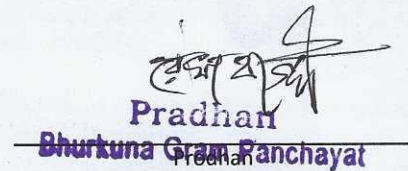 Pradhan
Bhurkuna Gram Panchayat
Prodhan